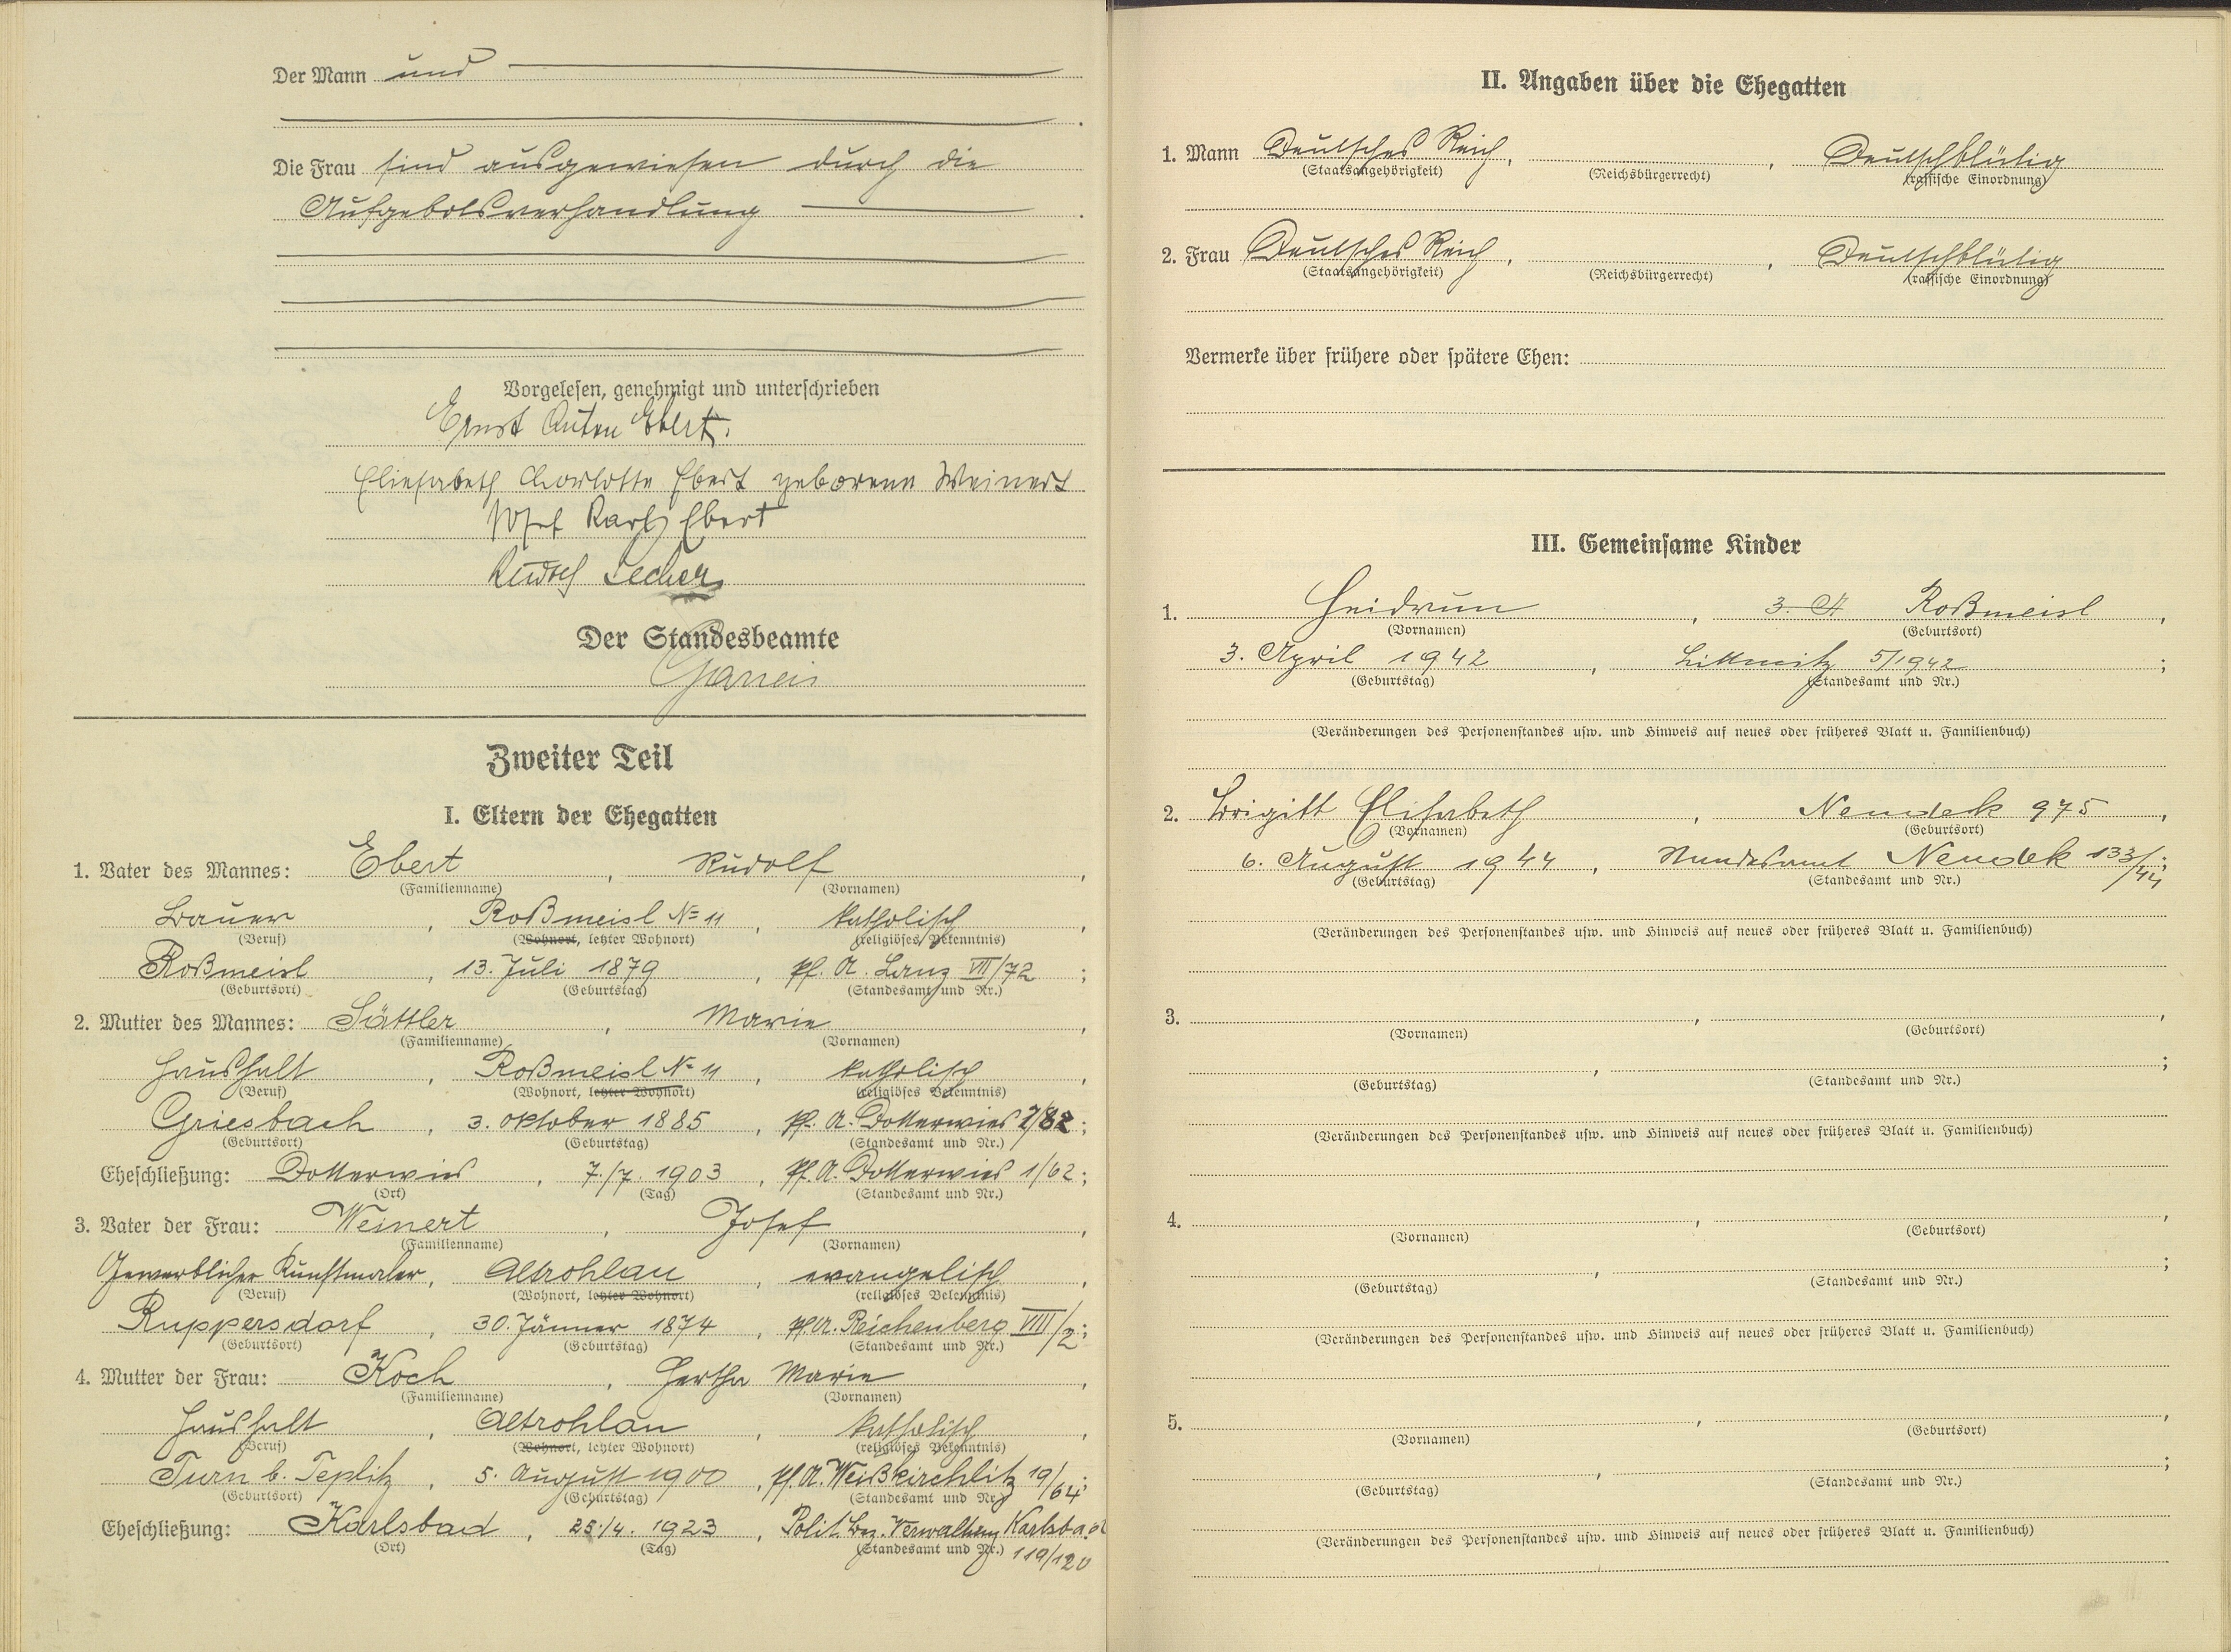 Der Mann und
Die Frau sind ausgewiesen durch die
Aufgebotsverhandlung
Vorgelesen, genehmigt und unterschrieben
Ernst Anton Ebert.
Eliesabeth Charlotte Ebert geborene Weinert
Josef Karl Ebert
Rudolf
Der Standesbeamte
Zweiter Teil
I. Eltern der Ehegatten
1. Vater des Mannes: Ebert, Rudolf,
(Familienname) (Vornamen)
Bauer, Roßmeisl No 11, katholisch,
(Beruf) (Wohnort, letzter Wohnort) (religiöses Bekenntnis)
Roßmeisl, 13. Juli 1879, Pf. A. Lanz VII/72;
(Geburtsort) (Geburtstag) (Standesamt und Nr.)
2. Mutter des Mannes: Sättler, Marie,
(Familienname) (Vornamen)
Haushalt, Roßmeisl No 11, katholisch,
(Beruf) (Wohnort, letzter Wohnort) (religiöses Bekenntnis)
Griesbach, 3. Oktober 1885, Pf. A. Dotterwies 7/82;
(Geburtsort) (Geburtstag) (Standesamt und Nr.)
Eheschließung: Dotterwies, 7./7. 1903, Pf. A. Dotterwies 1/62;
(Ort) (Tag) (Standesamt und Nr.)
3. Vater der Frau: Weinert, Josef,
(Familienname) (Vornamen)
Gewerblicher Kunstmaler, Altrohlau, evangelisch,
(Beruf) (Wohnort, letzter Wohnort) (religiöses Bekenntnis)
Ruppersdorf, 30. Jänner 1874, Pf. A. Reichenberg VIII/2;
(Geburtsort) (Geburtstag) (Standesamt und Nr.)
4. Mutter der Frau: Koch, Hertha Marie,
(Familienname) (Vornamen)
Haushalt, Altrohlau, katholisch,
(Beruf) (Wohnort, letzter Wohnort) (religiöses Bekenntnis)
Turn b. Teplitz, 5. August 1900, Pf. A. Weißkirchlitz 19/64;
(Geburtsort) (Geburtstag) (Standesamt und Nr.)
Eheschließung: Karlsbad, 25./4. 1923, Polit. Bez. Verwaltung Karlsbad
(Ort) (Tag) (Standesamt und Nr.) 119/120
II. Angaben über die Ehegatten
1. Mann Deutsches Reich, , Deutschblütig
(Staatsangehörigkeit) (Reichsbürgerrecht) (rassische Einordnung)
2. Frau Deutsches Reich, , Deutschblütig
(Staatsangehörigkeit) (Reichsbürgerrecht) (rassische Einordnung)
Vermerke über frühere oder spätere Ehen:
III. Gemeinsame Kinder
1. Heidrun, 3. A Roßmeisl,
(Vornamen) (Geburtsort)
3. April 1942, Littmitz 5/1942;
(Geburtstag) (Standesamt und Nr.)
(Veränderungen des Personenstandes usw. und Hinweis auf neues oder früheres Blatt u. Familienbuch)
2. Brigitt Elisabeth, Neudek 975,
(Vornamen) (Geburtsort)
6. August 1944, Standesamt Neudek 133/44;
(Geburtstag) (Standesamt und Nr.)
(Veränderungen des Personenstandes usw. und Hinweis auf neues oder früheres Blatt u. Familienbuch)
3. , ,
(Vornamen) (Geburtsort)
, ;
(Geburtstag) (Standesamt und Nr.)
(Veränderungen des Personenstandes usw. und Hinweis auf neues oder früheres Blatt u. Familienbuch)
4. , ,
(Vornamen) (Geburtsort)
, ;
(Geburtstag) (Standesamt und Nr.)
(Veränderungen des Personenstandes usw. und Hinweis auf neues oder früheres Blatt u. Familienbuch)
5. , ,
(Vornamen) (Geburtsort)
, ;
(Geburtstag) (Standesamt und Nr.)
(Veränderungen des Personenstandes usw. und Hinweis auf neues oder früheres Blatt u. Familienbuch)